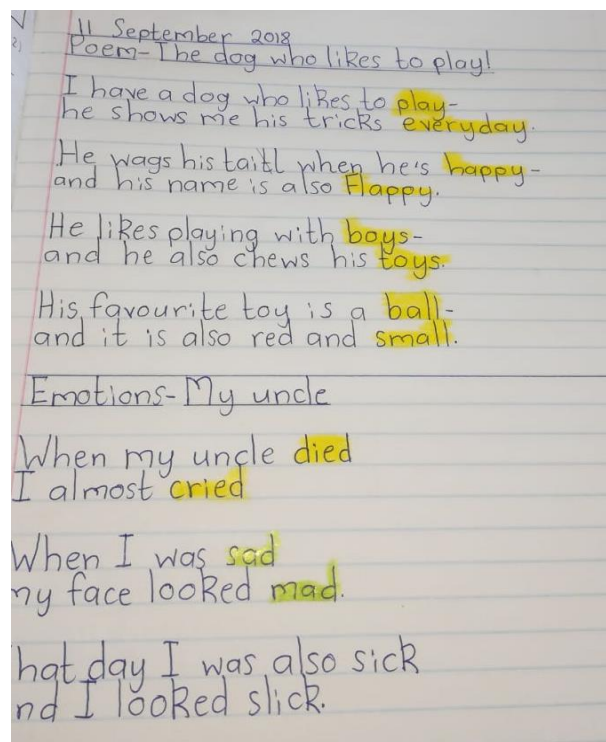 11 September 2018
Poem-The dog who likes to play!
I have a dog who likes to play-
he shows me his tricks everyday.
He wags his taitl when he's happy-
and his name is also Flappy.
He likes playing with boys-
and he also chews his toys.
His favourite toy is a ball-
and it is also red and small.
Emotions-My uncle
When my uncle died
I almost cried
When I was sad
my face looked mad.
hat day I was also sick
nd I looked slick.